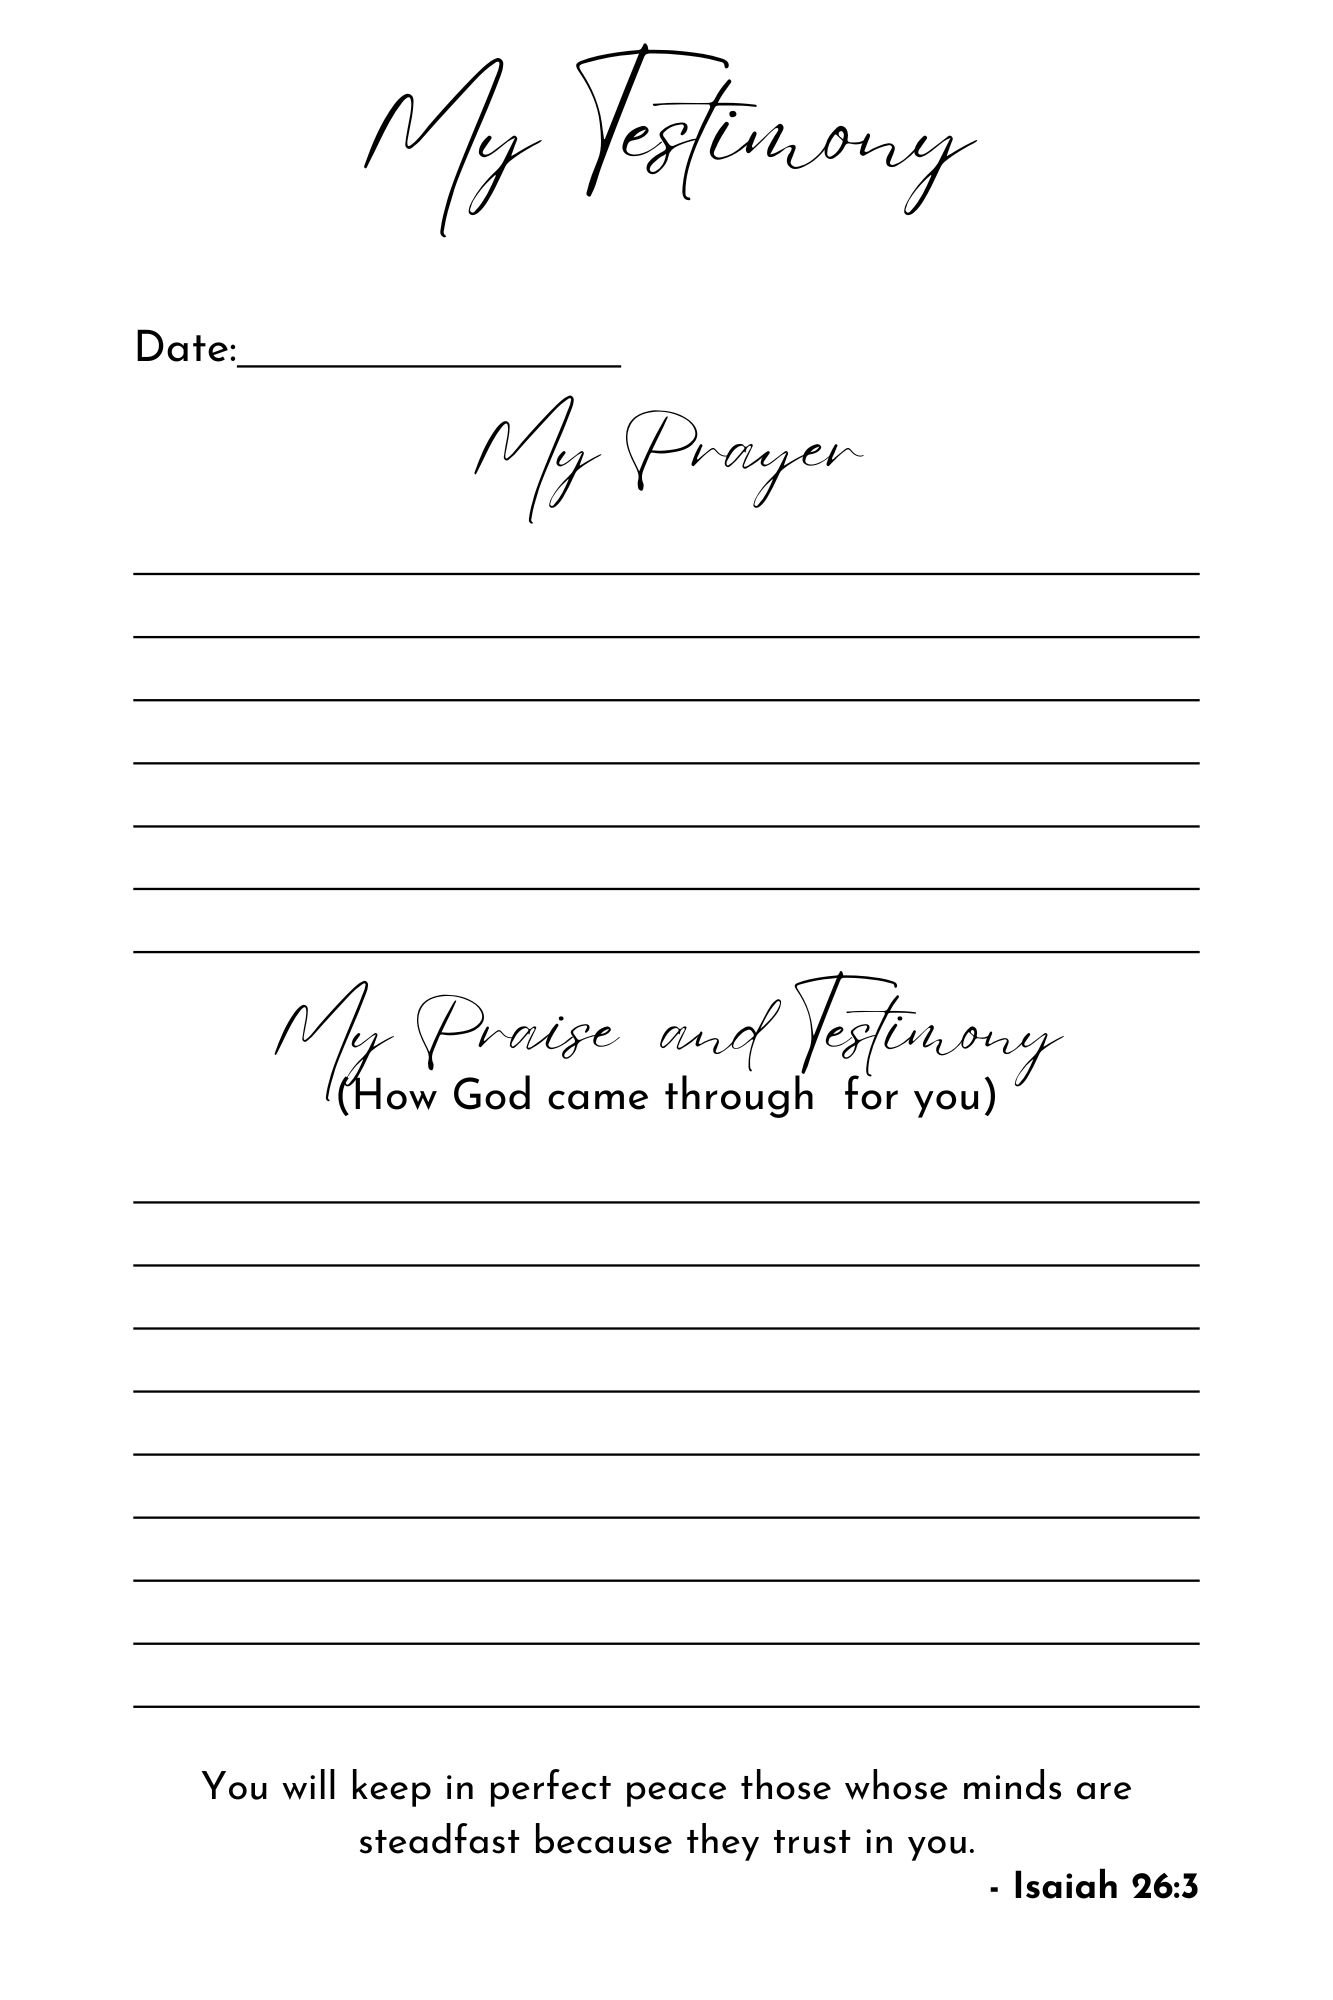 My Testimony
Date:
My Prayer
My Praise and Testimony
(How God came through for you)
You will keep in perfect peace those whose minds are
steadfast because they trust in you.
- Isaiah 26:3